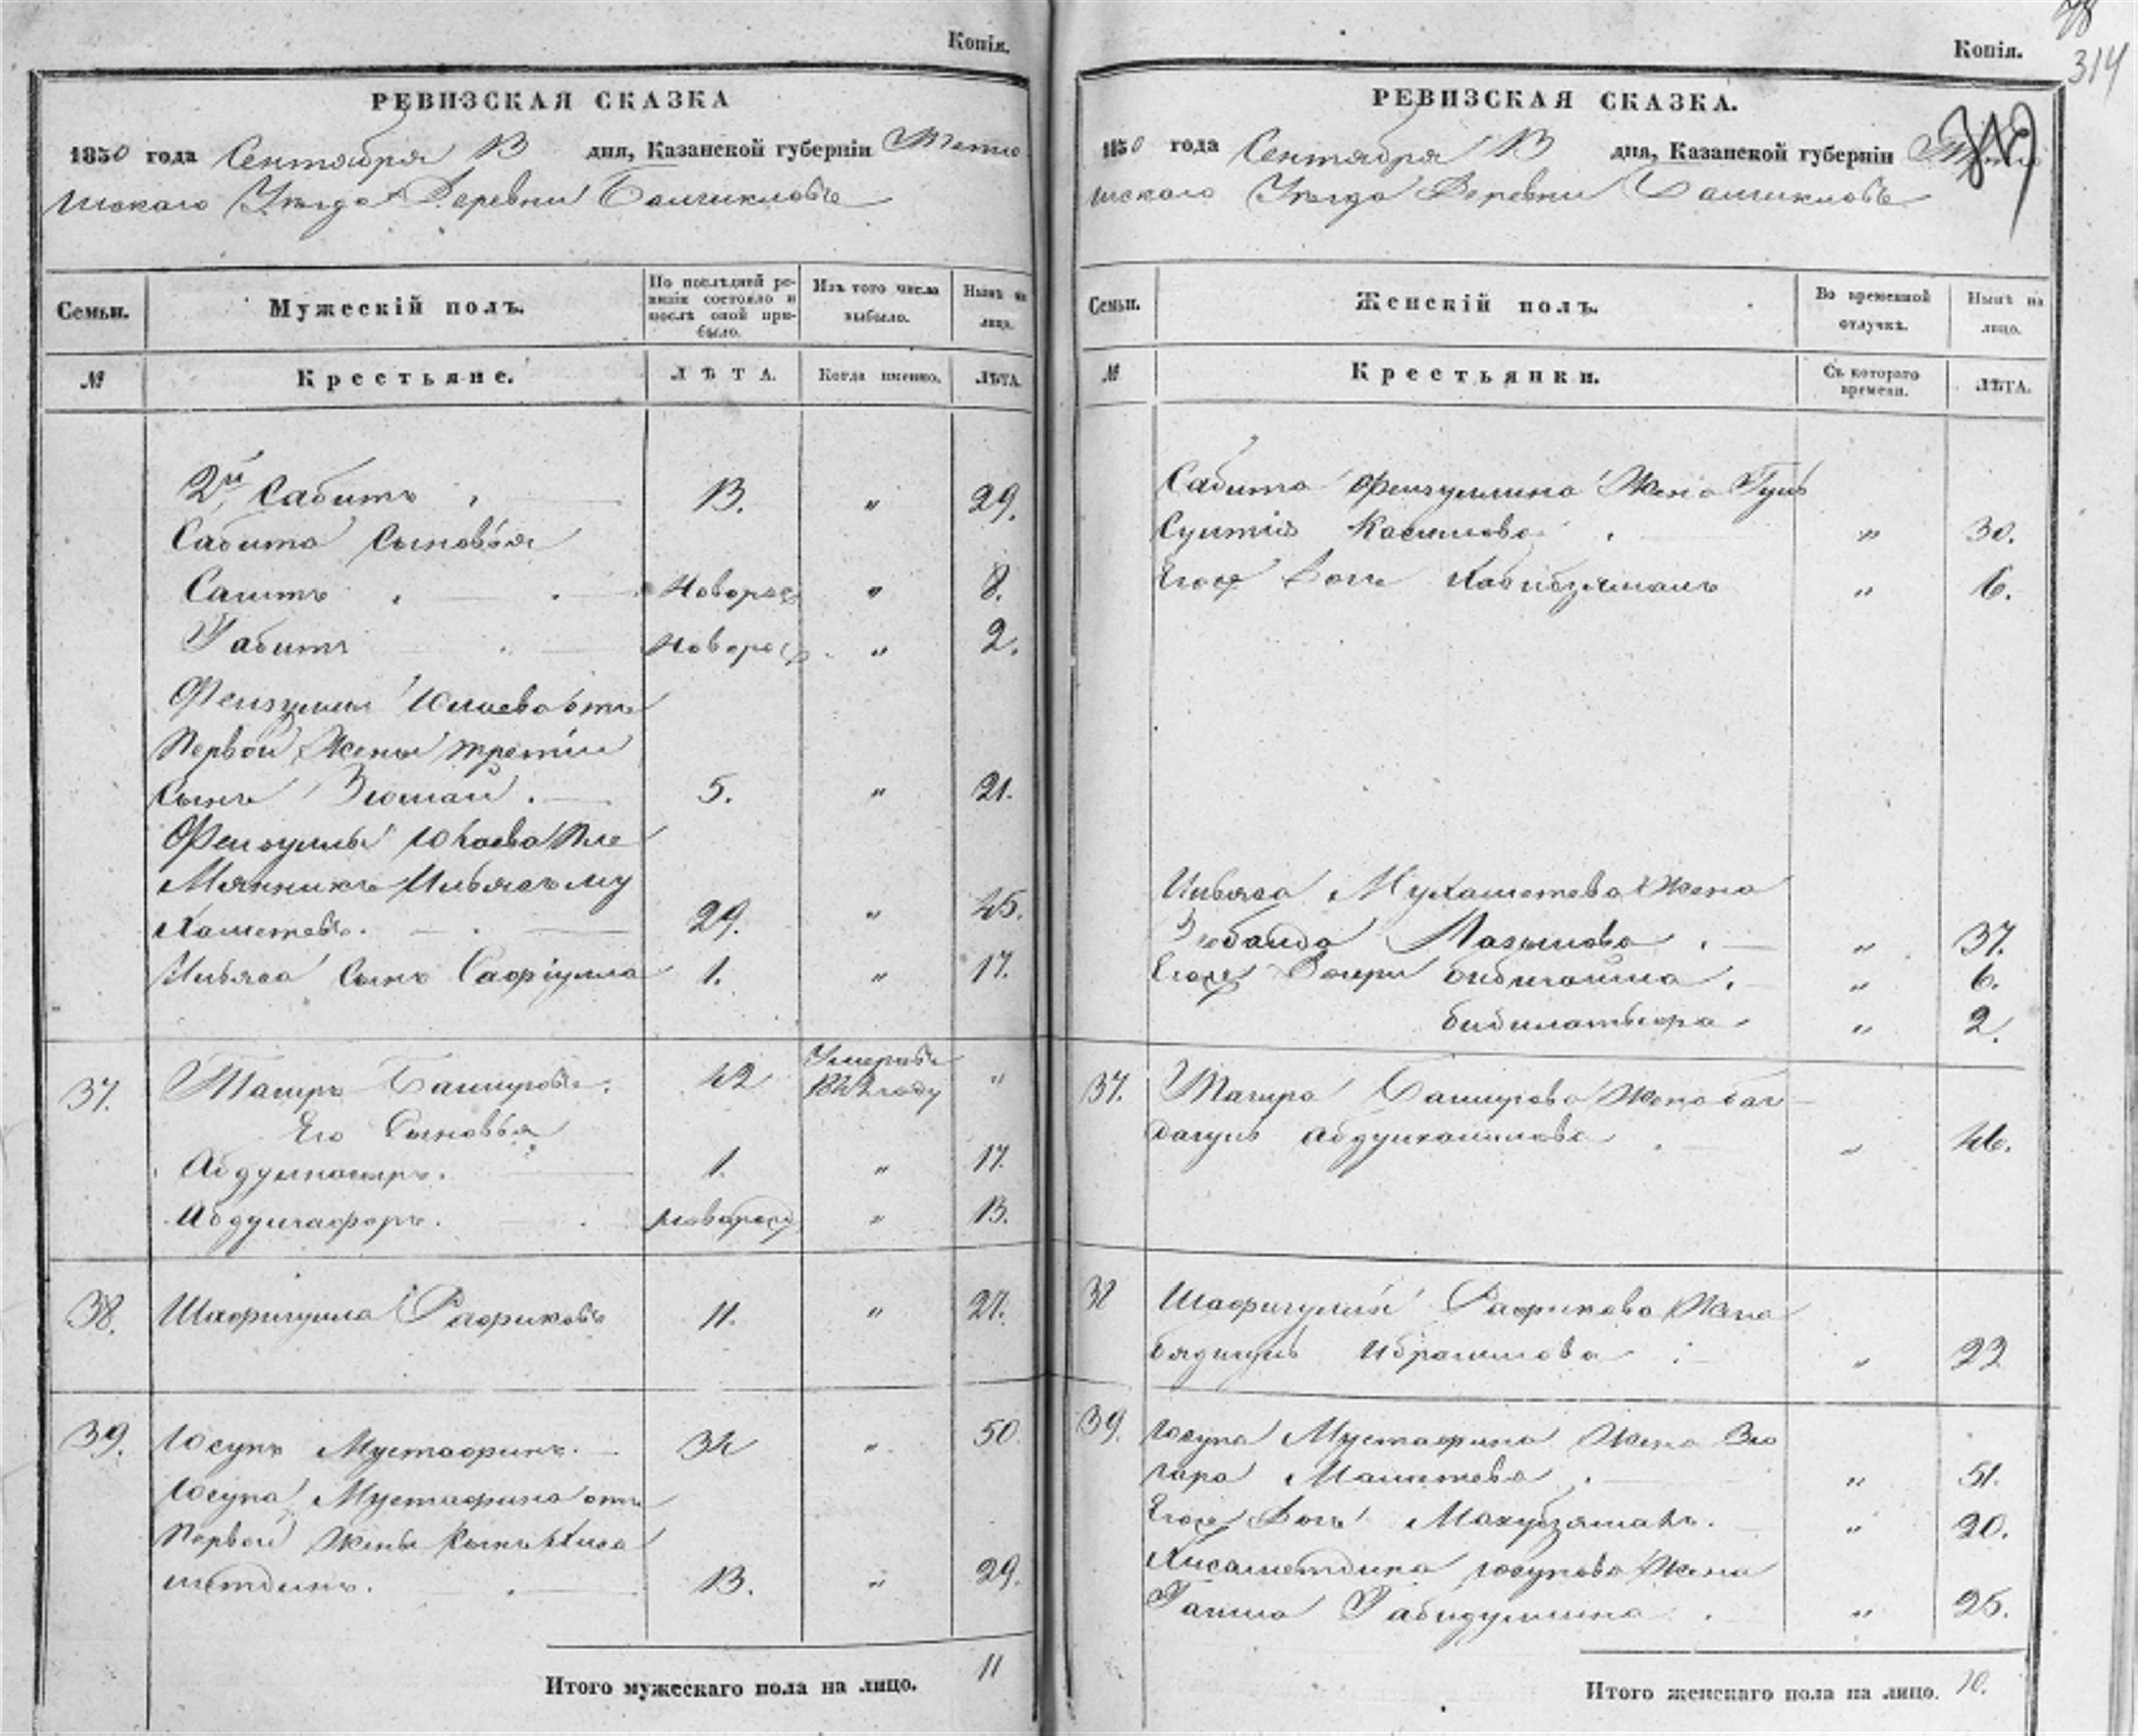 Копія.
РЕВИЗСКАЯ СКАЗКА
1850 года Сентября 13 дня, Казанской губерніи Тетю
шскаго Уѣзда Деревни
Семьи.
Мужескій полъ.
По послѣдней ре-
визіи состояло и
послѣ оной при-
было.
Изъ того числа
выбыло.
Нынѣ на
лицо.
№
Крестьяне.
ЛѢТА.
Когда именно.
ЛѢТА.
2й Сабитъ 13. " 29.
Сабита Сыновья
Сагитъ Новорож " 8.
Габитъ Новорож " 2.
Фейзуллы от
Первой Жены третій
Сынъ 5. " 21.
Фейзуллы Пле
мянникъ Ильясъ Му
хаметевъ. 29. " 45.
Ильяса Сынъ Сафіулла 1. " 17.
37. Тагиръ Башировъ. 42 Умеръ въ 1842 году "
Его Сыновья
Абдулнасыръ. 1. " 17.
Абдулгафаръ. Новорож " 13.
38. Шафигулла Рафиковъ 11. " 27.
39. Юсупъ Мустафинъ. 34 " 50
Юсупа Мустафина отъ
Первой Жены Сынъ Хиса
метдинъ. 13. " 29.
Итого мужескаго пола на лицо. 11
78
314
Копія.
РЕВИЗСКАЯ СКАЗКА.
1850 года Сентября 13 дня, Казанской губерніи Тетю
шскаго Уѣзда Деревни
Семьи.
Женскій полъ.
Во временной
отлучкѣ.
Нынѣ на
лицо.
№
Крестьянки.
Съ котораго
времени.
ЛѢТА.
Сабита Фейзуллина Жена Гуль
Касимова " 30.
Ихъ Дочь Хабибзямалъ " 6.
Ильяса Мухаметева Жена
" 37.
Ихъ Дочери " 6.
" 2.
37. Тагира Баширова Жена Баг
дагуль " 46.
38 Шафигуллы Рафикова Жена
Бядигулъ Ибрагимова " 22
39. Юсупа Мустафина Жена Зю
гара Маметева " 51.
Ихъ Дочь Махубзямалъ. " 20.
Хисаметдина Юсупова Жена
Галима Габидуллина " 25.
Итого женскаго пола на лицо. 10.